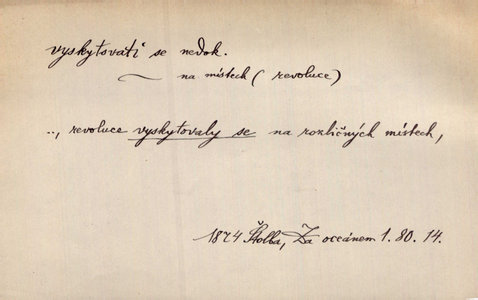 vyskytovati se nedok.
~ na místech (revoluce)
.., revoluce vyskytovaly se na rozličných místech,
1874 Štolba, Za oceánem 1.80.14.